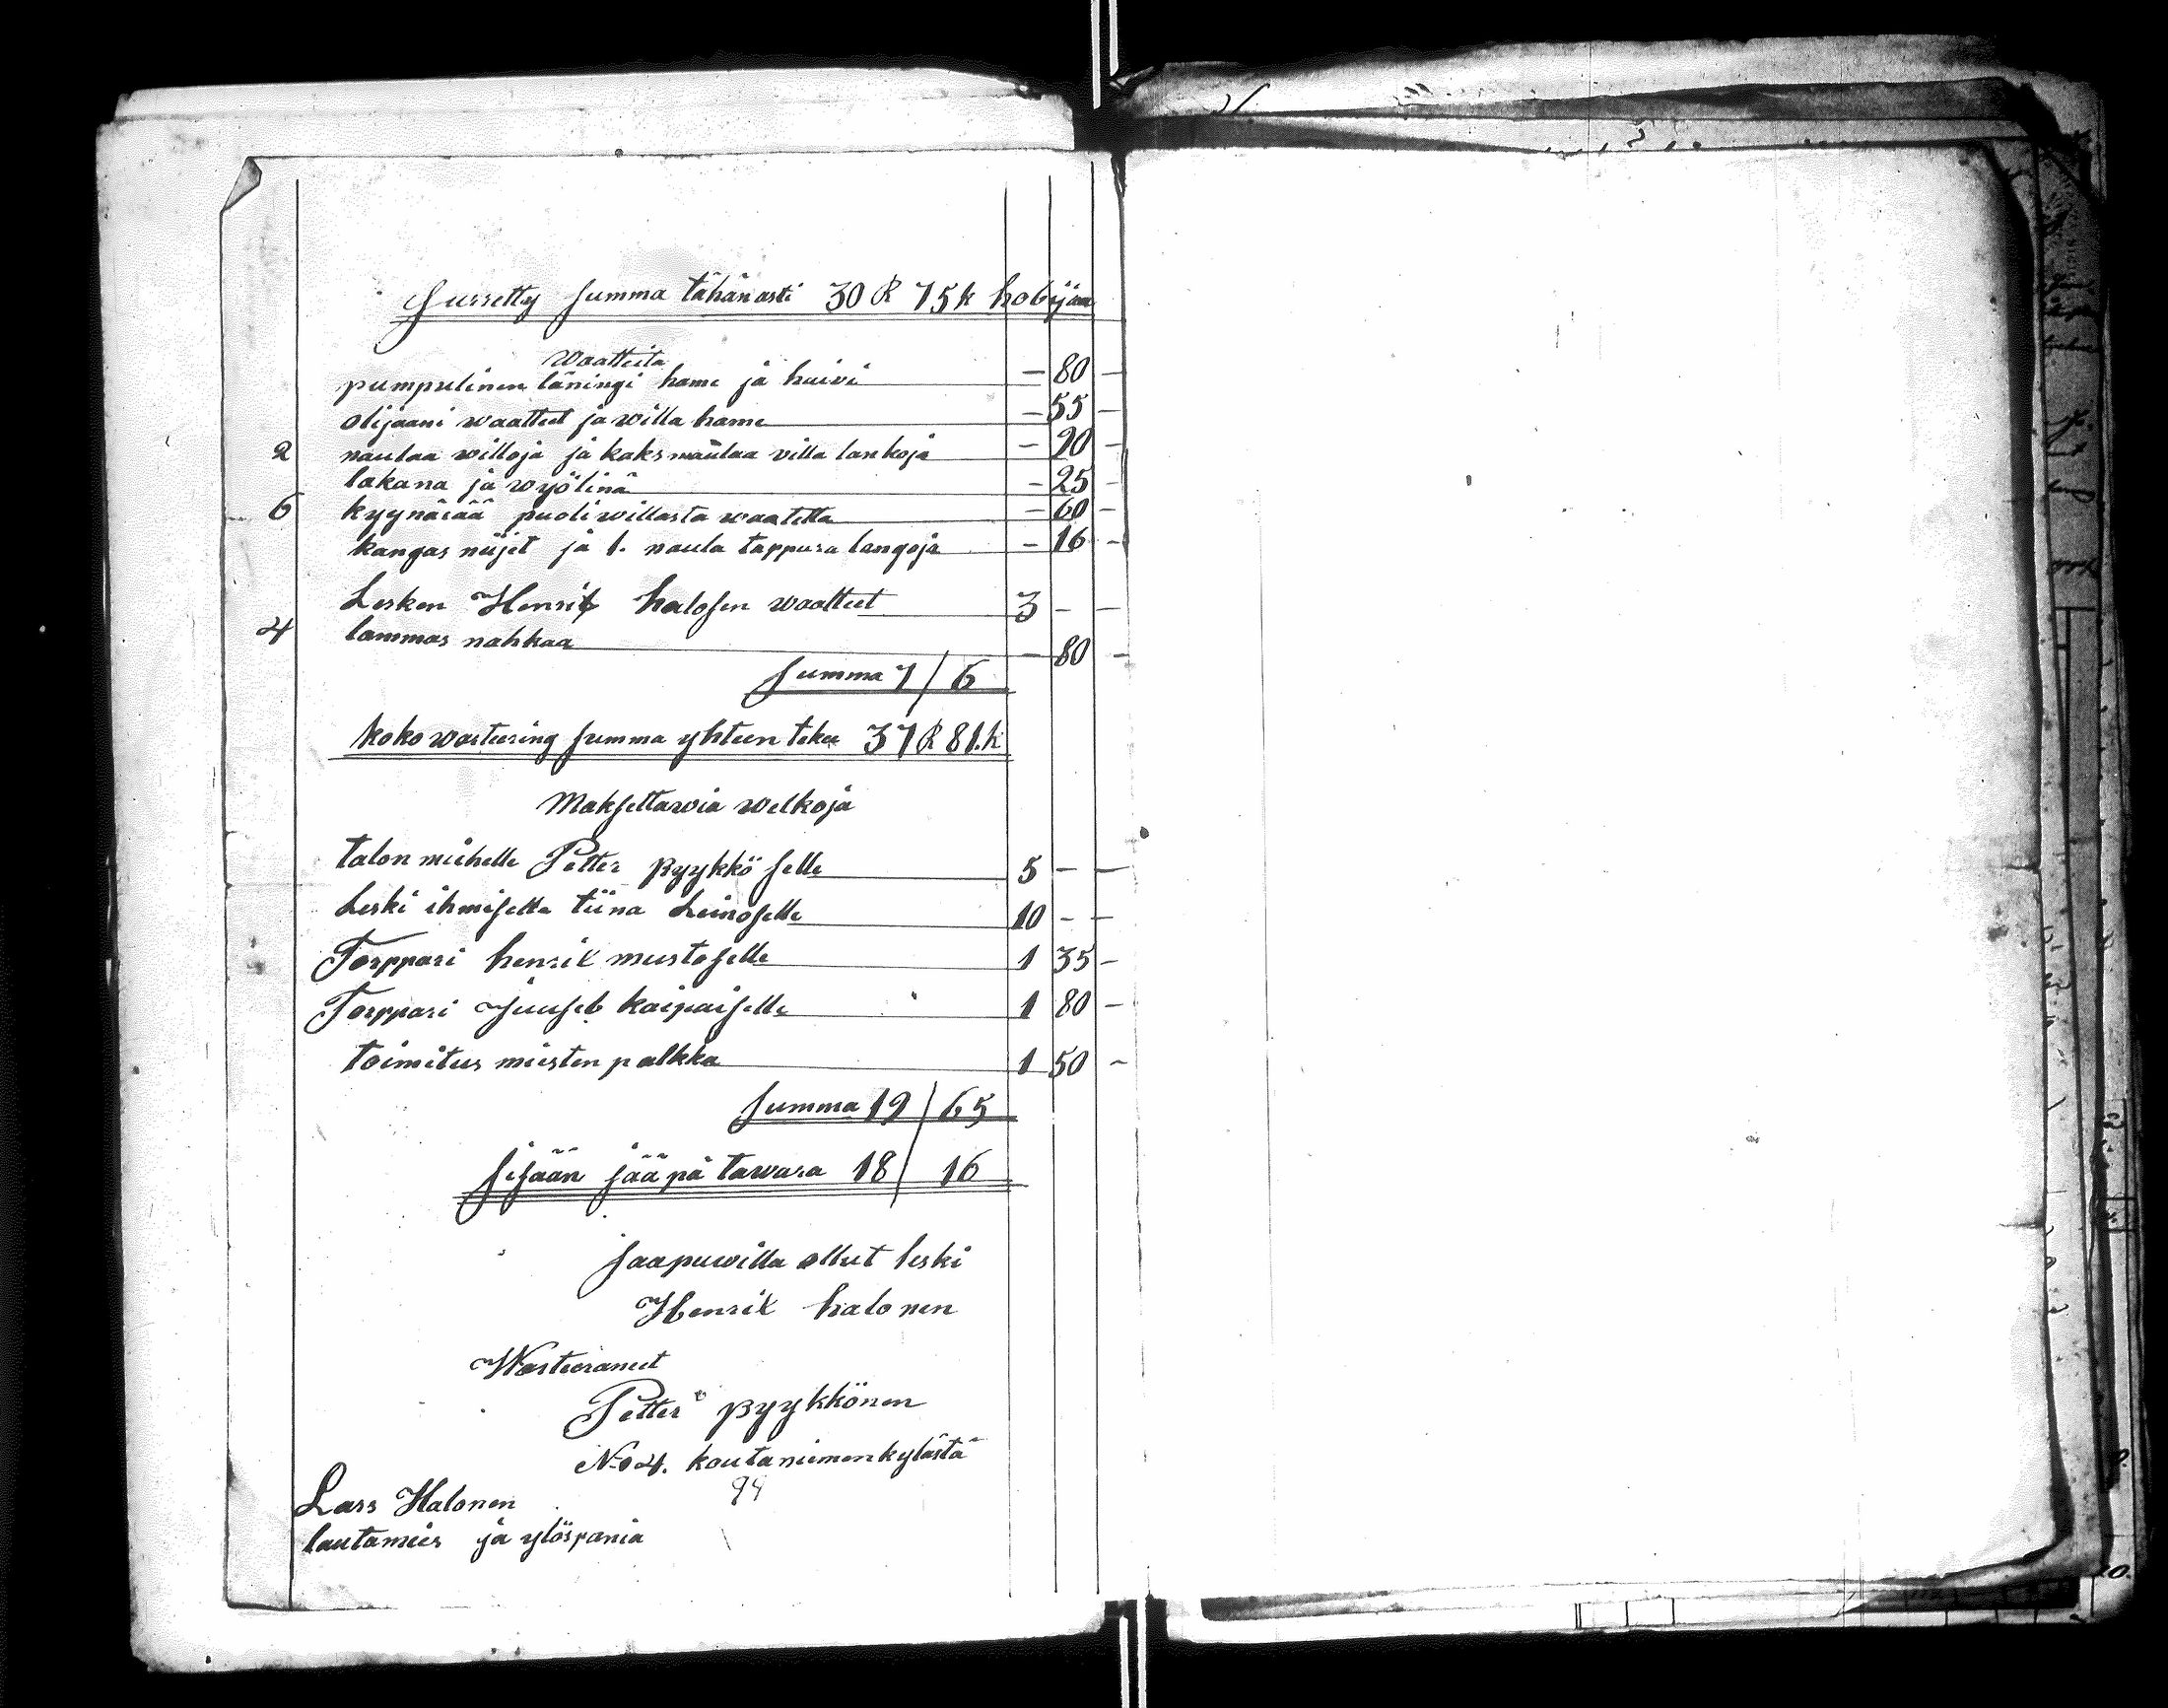 surretty summa tähänasti 30 R 75 k hobijaa
waatteita
pumpulinen läningi hame ja huivi — 80 —
olijaani waatteet ja willa hame — 55 —
2 naulaa willoja ja kaks naulaa villa lankoja — 90 —
lakana ja wyölinä — 25 —
6 kyynärää puoliwillasta waatetta — 60 —
kangas niijet ja 1. naula tappura langoja — 16 —
Lesken Henrik halosen waatteet 3 — —
4 lammas nahkaa — 80 —
summa 7 / 6
koko wasteering summa yhteen tekee 37 R 81. k
Maksettawia welkoja
talon miehelle Petter pyykkö selle 5 — —
Leski ihmiselle tiina Leinoselle 10 — —
Torppari henrik mustoselle 1 35 —
Torppari Juuseb kaipaiselle 1 80 —
toimitus miesten palkka 1 50 —
summa 19 / 65
sisään jääpä tawara 18 / 16
saapuwilla ollut leski
Henrik halonen
Wasteeraneet
Petter pyykkönen
No 4. koutaniemenkylästä
99
Lars Halonen
lautamies ja ylöspania